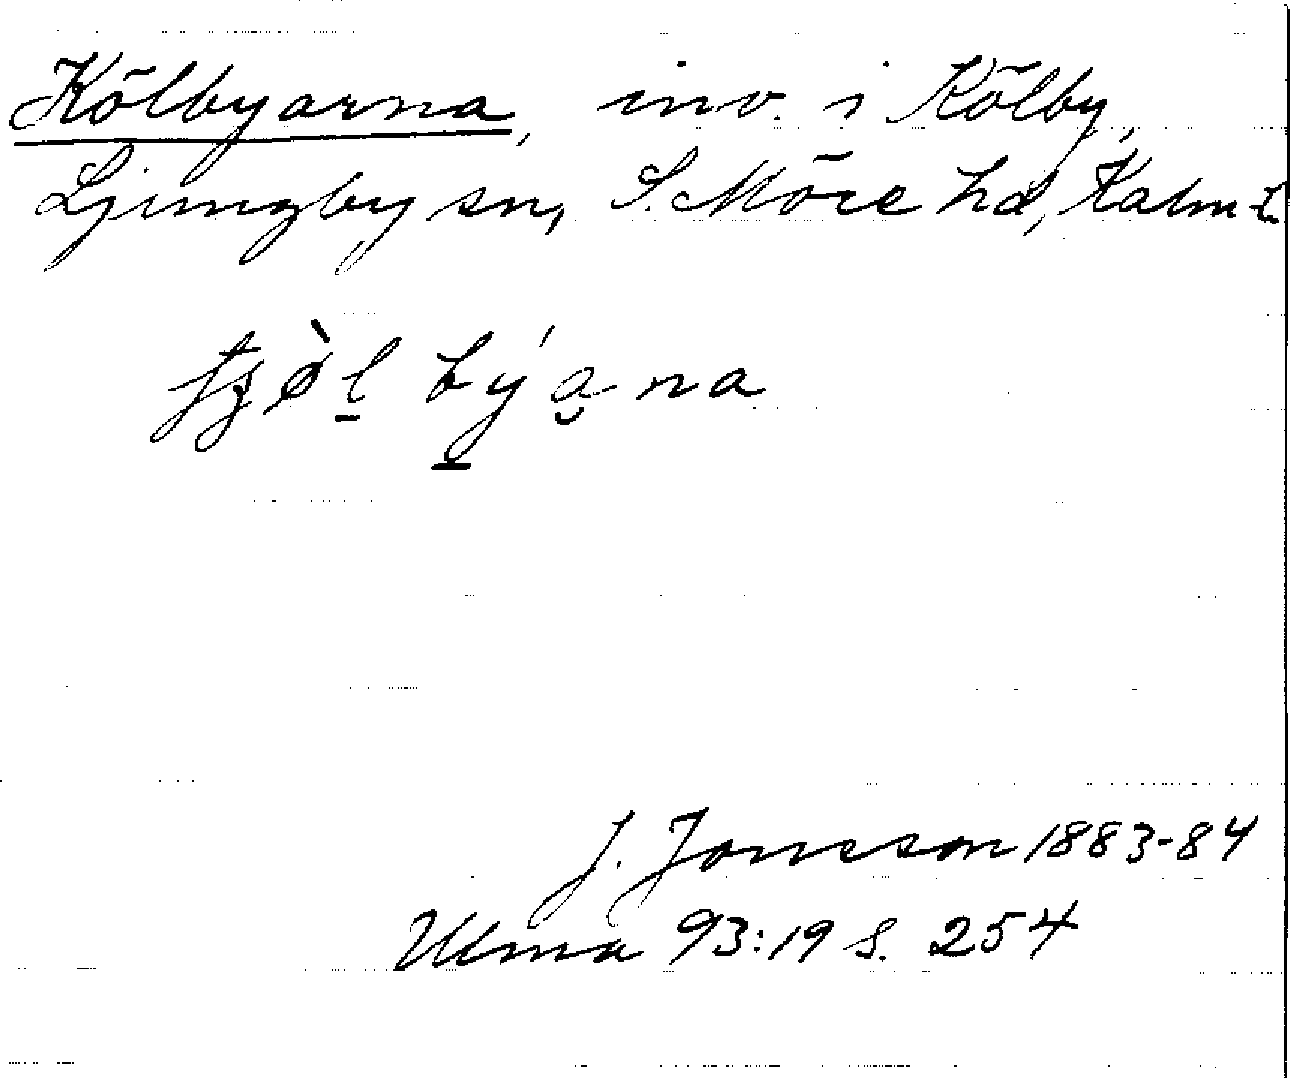 Kölbyarna, inv. i Kölby,
Ljungby sn, S. Möre hd, Kalm l.
J. Jonsson 1883-84
Ulma 93:19 s. 254